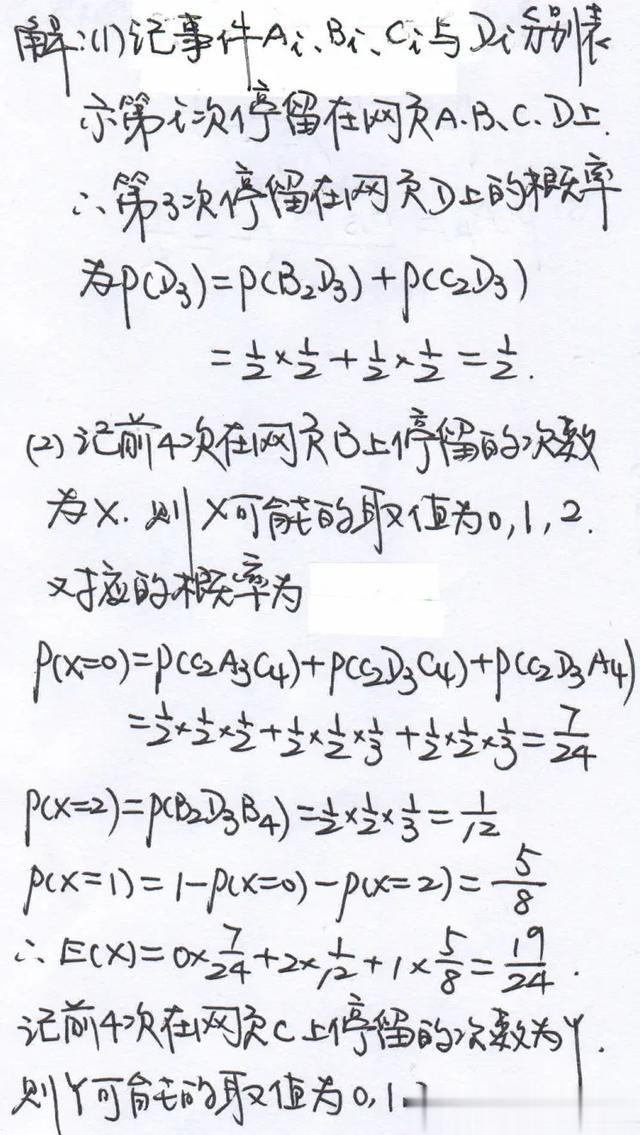 解:(1)记事件Ai、Bi、Ci与Di分别表
示第i次停留在网页A.B、C.D上.
∴第3次停留在网页D上的概率
为P(D₃)=P(B₂D₃)+P(C₂D₃)
=½×½+½×½=½.
(2)记前4次在网页B上停留的次数
为X.则X可能的取值为0,1,2.
对应的概率为
P(X=0)=P(C₂A₃C₄)+P(C₂D₃C₄)+P(C₂D₃A₄)
=½×½×½+½×½×⅓+½×½×⅓=7/24
P(X=2)=P(B₂D₃B₄)=½×½×⅓=1/12
P(X=1)=1-P(X=0)-P(X=2)=5/8
∴E(X)=0×7/24+2×1/12+1×5/8=19/24.
记前4次在网页C上停留的次数为Y.
则Y可能的取值为0,1